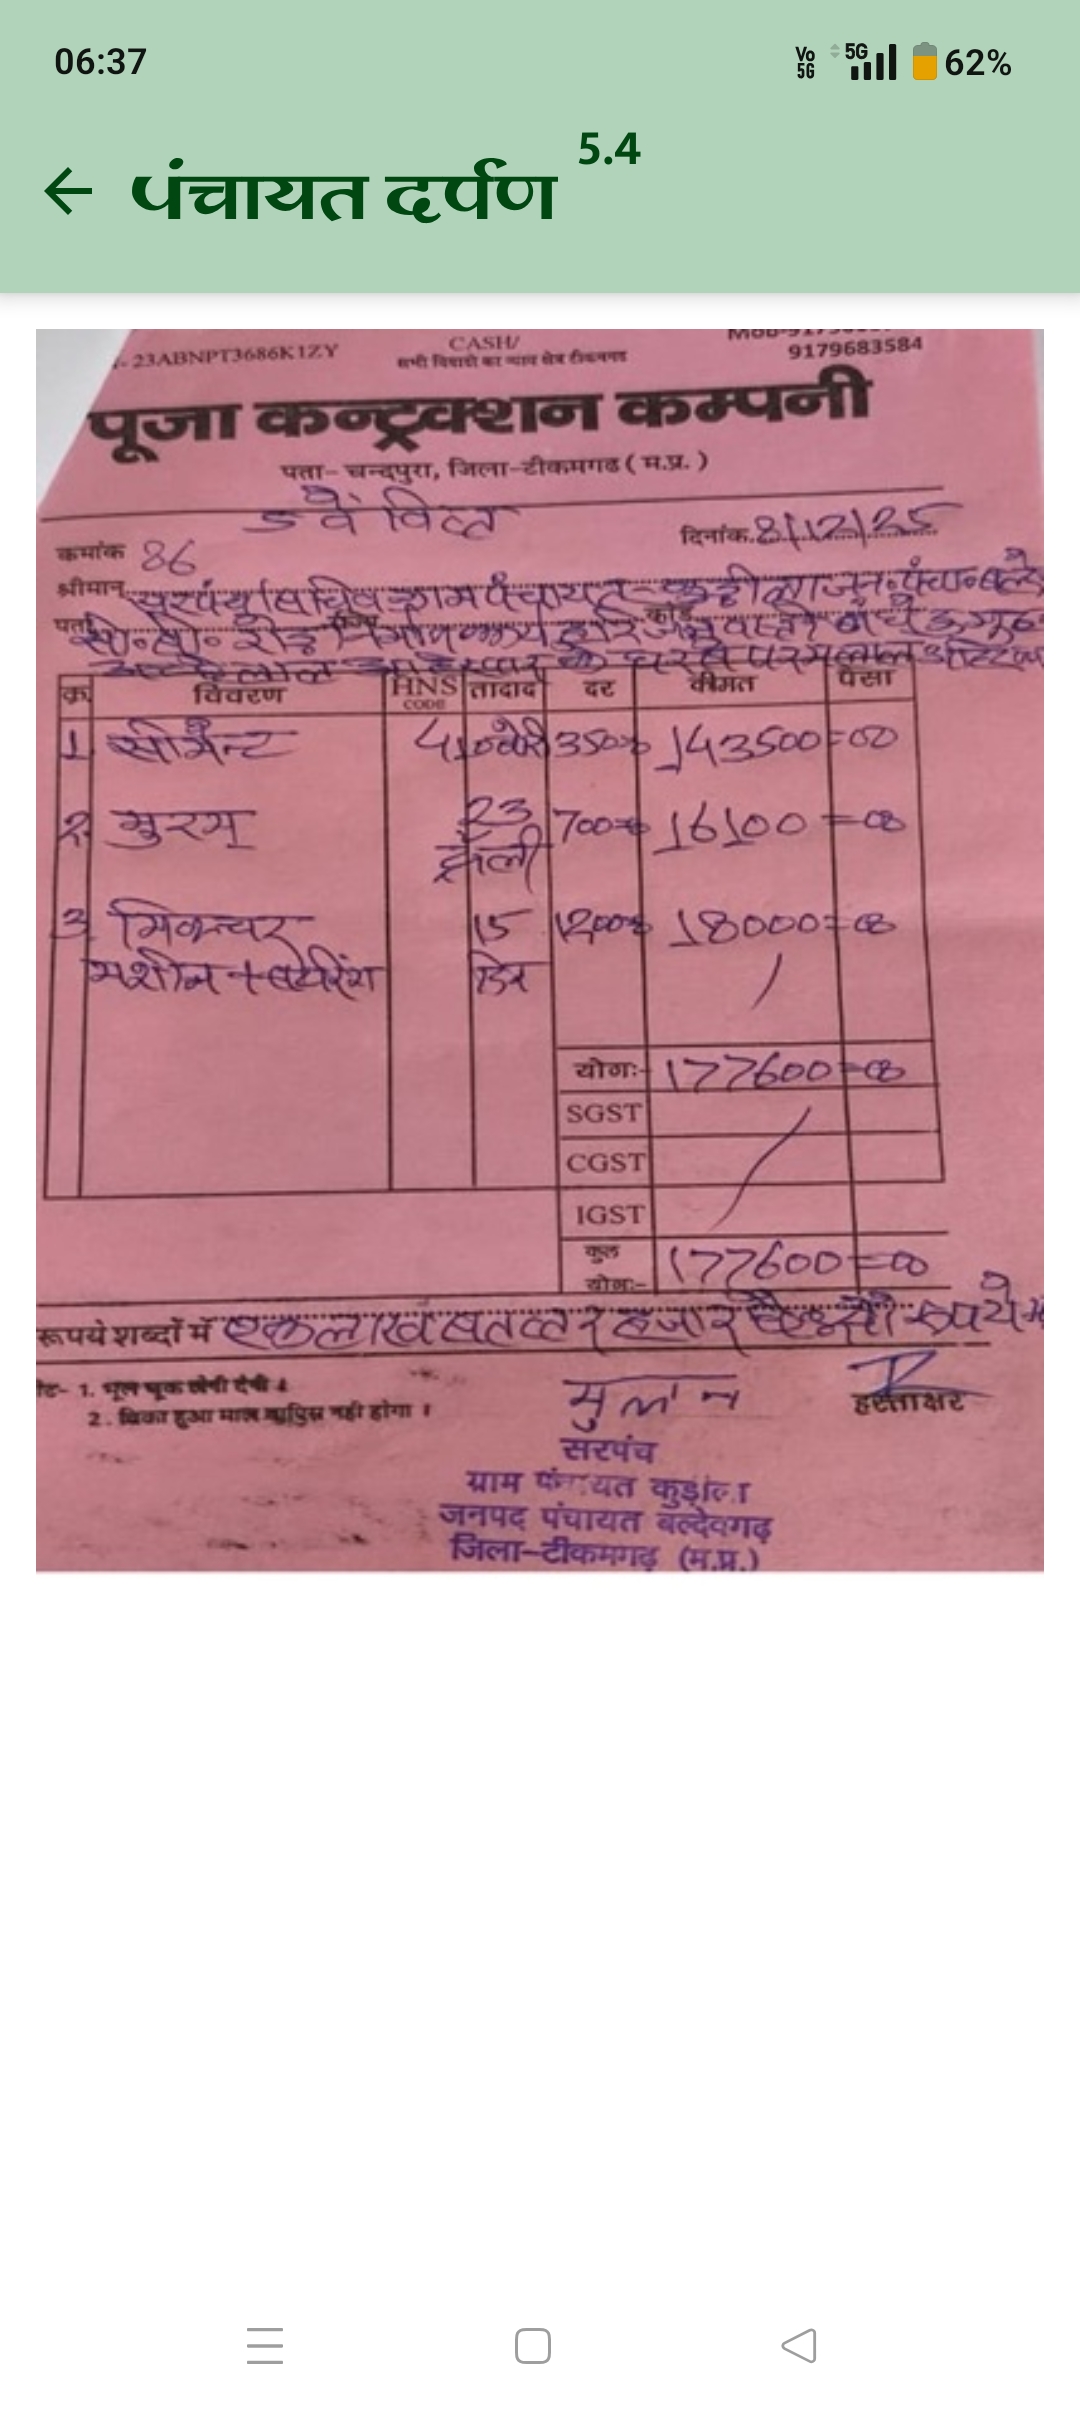 06:37
Vo 5G 5G 62%
पंचायत दर्पण 5.4
23ABNPT3686K1ZY
CASH/
सभी विवादो का न्याय क्षेत्र टीकमगढ
9179683584
पूजा कन्ट्रक्शन कम्पनी
पता- चन्दपुरा, जिला-टीकमगढ ( म.प्र. )
5 वें वित्त
कमांक 86
दिनांक 8/12/25
श्रीमान सरपंच/सचिव ग्राम पंचायत
पता सी०सी० रोड निर्माण कार्य
के घर से
क्र विवरण HNS CODE तादाद दर कीमत पैसा
1 सीमेन्ट 410 बोरी 350=00 143500=00
2 मुरम 23 ट्रॉली 700=00 16100=00
3 मिक्चर 15 1200=00 18000=00
मशीन + दिन
योगः- 177600=00
SGST
CGST
IGST
कुल योगः- 177600=00
रूपये शब्दों में एक लाख सतत्तर हजार छै सौ रूपये
1. भूल चूक लेनी देनी ।
2. बिका हुआ माल वापिस नही होगा ।
हस्ताक्षर
सरपंच
ग्राम पंचायत कुडीला
जनपद पंचायत बल्देवगढ़
जिला-टीकमगढ़ (म.प्र.)